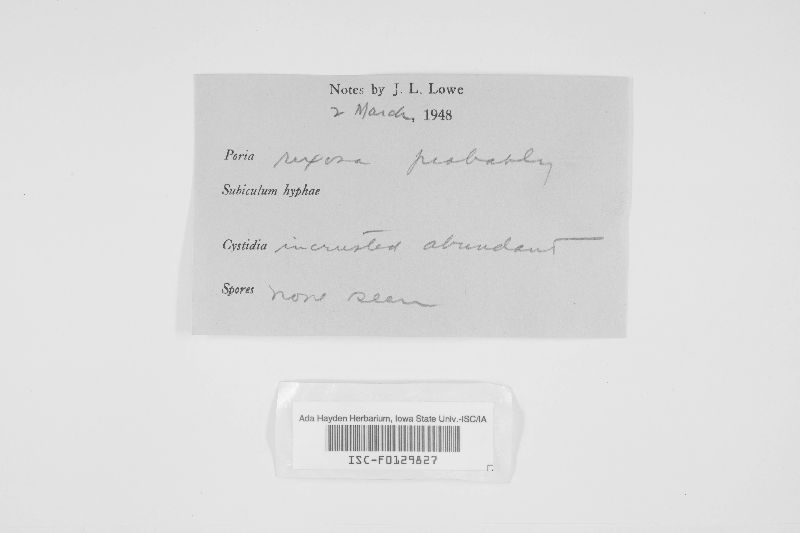 Notes by J. L. Lowe
2 March, 1948
Poria rixosa probably
Subiculum hyphae
Cystidia incrusted abundant
Spores none seen
Ada Hayden Herbarium, Iowa State Univ.-ISC/IA
ISC-F0129827